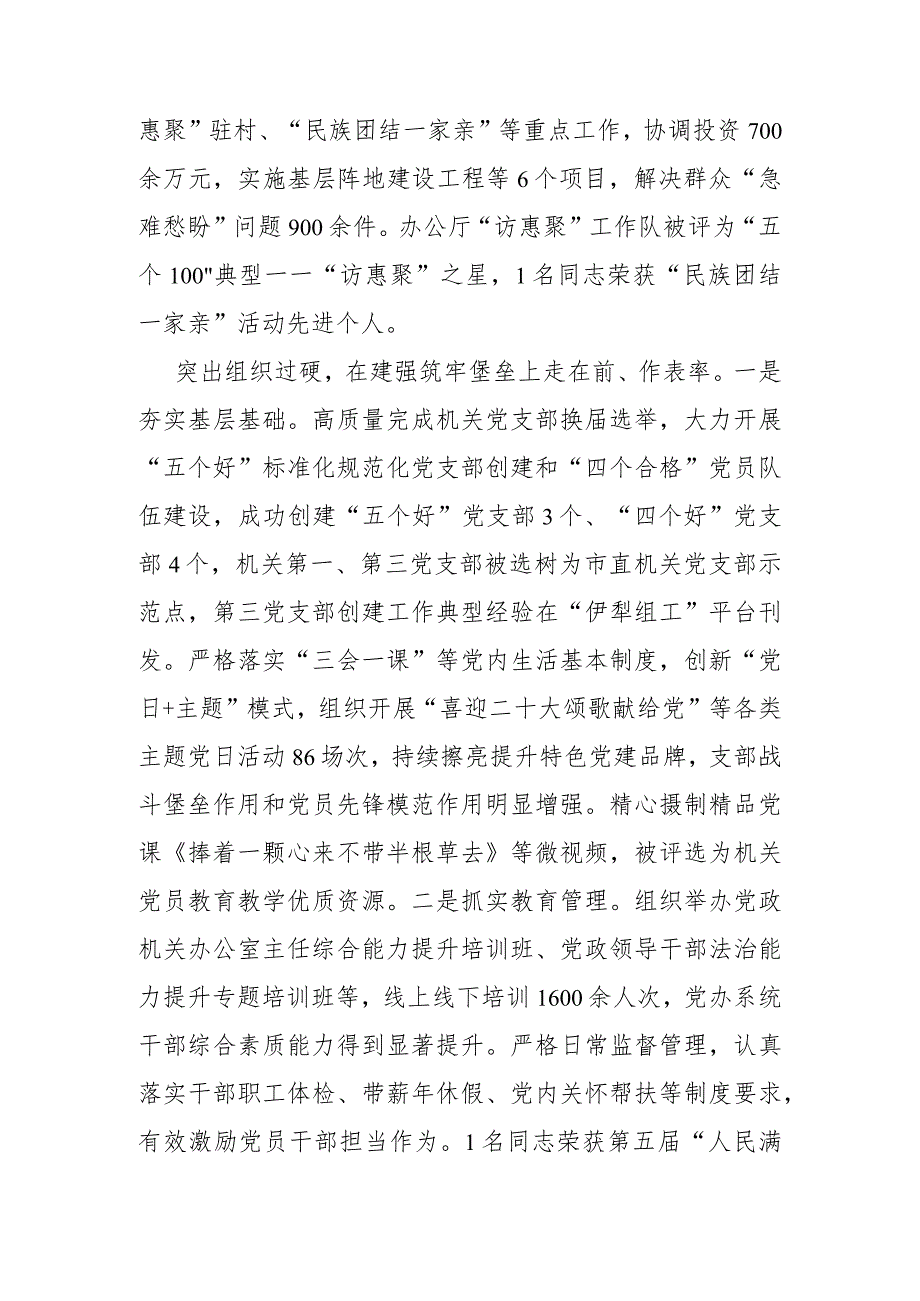 惠聚”驻村、“民族团结一家亲”等重点工作，协调投资 700
余万元，实施基层阵地建设工程等 6 个项目，解决群众“急
难愁盼”问题 900 余件。办公厅“访惠聚”工作队被评为“五
个 100"典型一一“访惠聚”之星，1 名同志荣获“民族团结
一家亲”活动先进个人。
突出组织过硬，在建强筑牢堡垒上走在前、作表率。一是
夯实基层基础。高质量完成机关党支部换届选举，大力开展
“五个好”标准化规范化党支部创建和“四个合格”党员队
伍建设，成功创建“五个好”党支部 3 个、“四个好”党支
部 4 个，机关第一、第三党支部被选树为市直机关党支部示
范点，第三党支部创建工作典型经验在“伊犁组工”平台刊
发。严格落实“三会一课”等党内生活基本制度，创新“党
日+主题”模式，组织开展“喜迎二十大颂歌献给党”等各类
主题党日活动 86 场次，持续擦亮提升特色党建品牌，支部战
斗堡垒作用和党员先锋模范作用明显增强。精心摄制精品党
课《捧着一颗心来不带半根草去》等微视频，被评选为机关
党员教育教学优质资源。二是抓实教育管理。组织举办党政
机关办公室主任综合能力提升培训班、党政领导干部法治能
力提升专题培训班等，线上线下培训 1600 余人次，党办系统
干部综合素质能力得到显著提升。严格日常监督管理，认真
落实干部职工体检、带薪年休假、党内关怀帮扶等制度要求，
有效激励党员干部担当作为。1 名同志荣获第五届“人民满